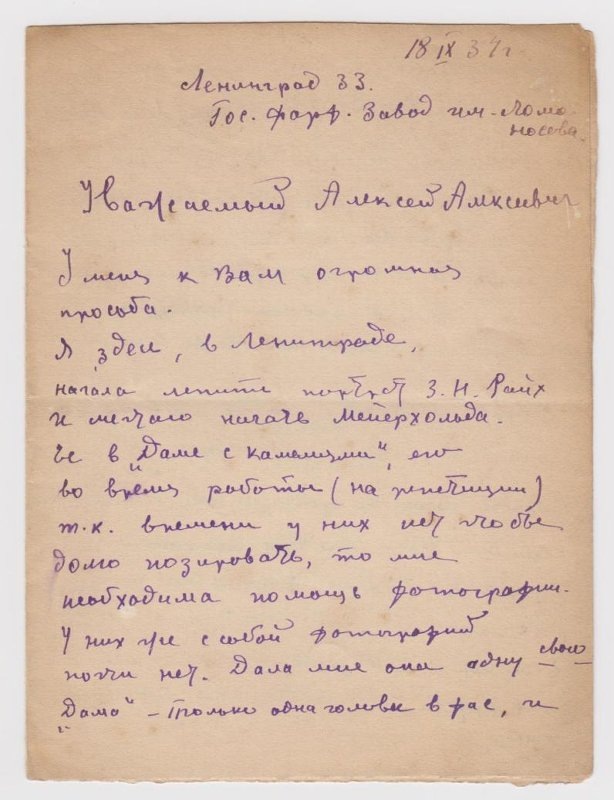 18 IX 34 г
Ленинград 33.
Гос. фарф. Завод им. Ломо-
носова.
Уважаемый Алексей Алексеевич
У меня к Вам огромная
просьба.
Я здесь, в Ленинграде,
начала лепить портрет З. Н. Райх
и мечтаю начать Мейерхольда.
Ее в „Даме с камелиями", его
во время работы (на репетиции)
т.к. времени у них нет чтобы
долго позировать, то мне
необходима помощь фотографии.
У них же с собой фотографий
почти нет. Дала мне она одну свою
„Дама" – только одна голова в фас, и